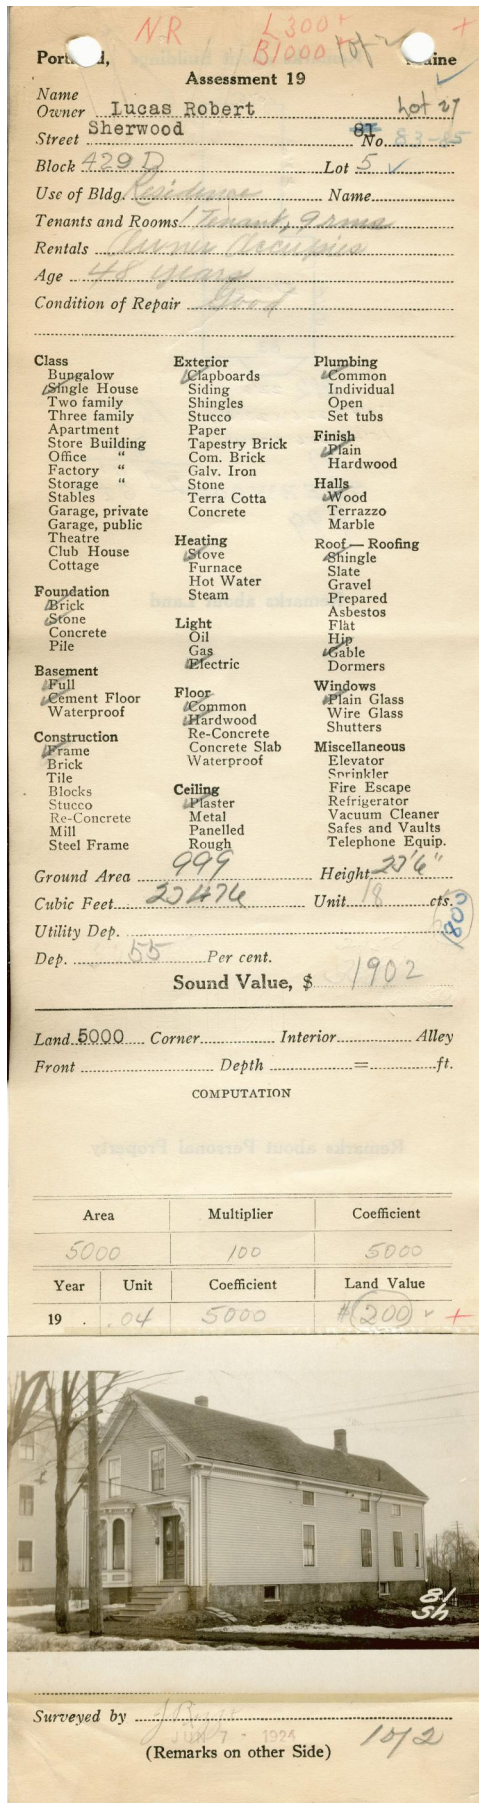 NR L300+ +
B1000+ 1 of 2
Portland, Maine
Assessment 19
Name
Owner Lucas Robert Lot 27
Street Sherwood 81 No. 83-85
Block 429 D Lot 5 ✓
Use of Bldg. Residence Name
Tenants and Rooms 1 Tenant, 9 rms
Rentals Owner Occupies
Age 48 years
Condition of Repair Good
Class
Bungalow
Single House
Two family
Three family
Apartment
Store Building
Office "
Factory "
Storage "
Stables
Garage, private
Garage, public
Theatre
Club House
Cottage
Foundation
Brick
Stone
Concrete
Pile
Basement
Full
Cement Floor
Waterproof
Construction
Frame
Brick
Tile
Blocks
Stucco
Re-Concrete
Mill
Steel Frame
Exterior
Clapboards
Siding
Shingles
Stucco
Paper
Tapestry Brick
Com. Brick
Galv. Iron
Stone
Terra Cotta
Concrete
Heating
Stove
Furnace
Hot Water
Steam
Light
Oil
Gas
Electric
Floor
Common
Hardwood
Re-Concrete
Concrete Slab
Waterproof
Ceiling
Plaster
Metal
Panelled
Rough
Plumbing
Common
Individual
Open
Set tubs
Finish
Plain
Hardwood
Halls
Wood
Terrazzo
Marble
Roof — Roofing
Shingle
Slate
Gravel
Prepared
Asbestos
Flat
Hip
Gable
Dormers
Windows
Plain Glass
Wire Glass
Shutters
Miscellaneous
Elevator
Sprinkler
Fire Escape
Refrigerator
Vacuum Cleaner
Safes and Vaults
Telephone Equip.
Ground Area 999 Height 22'6"
Cubic Feet 22476 Unit 18 cts.
Utility Dep. 800
Dep. 55 Per cent.
Sound Value, $ 1902
Land 5000 Corner Interior Alley
Front Depth = ft.
COMPUTATION
Area Multiplier Coefficient
5000 100 5000
Year Unit Coefficient Land Value
19 . .04 5000 $200 ✓ +
81
Sh
Surveyed by
7 - 1924
1 of 2
(Remarks on other Side)